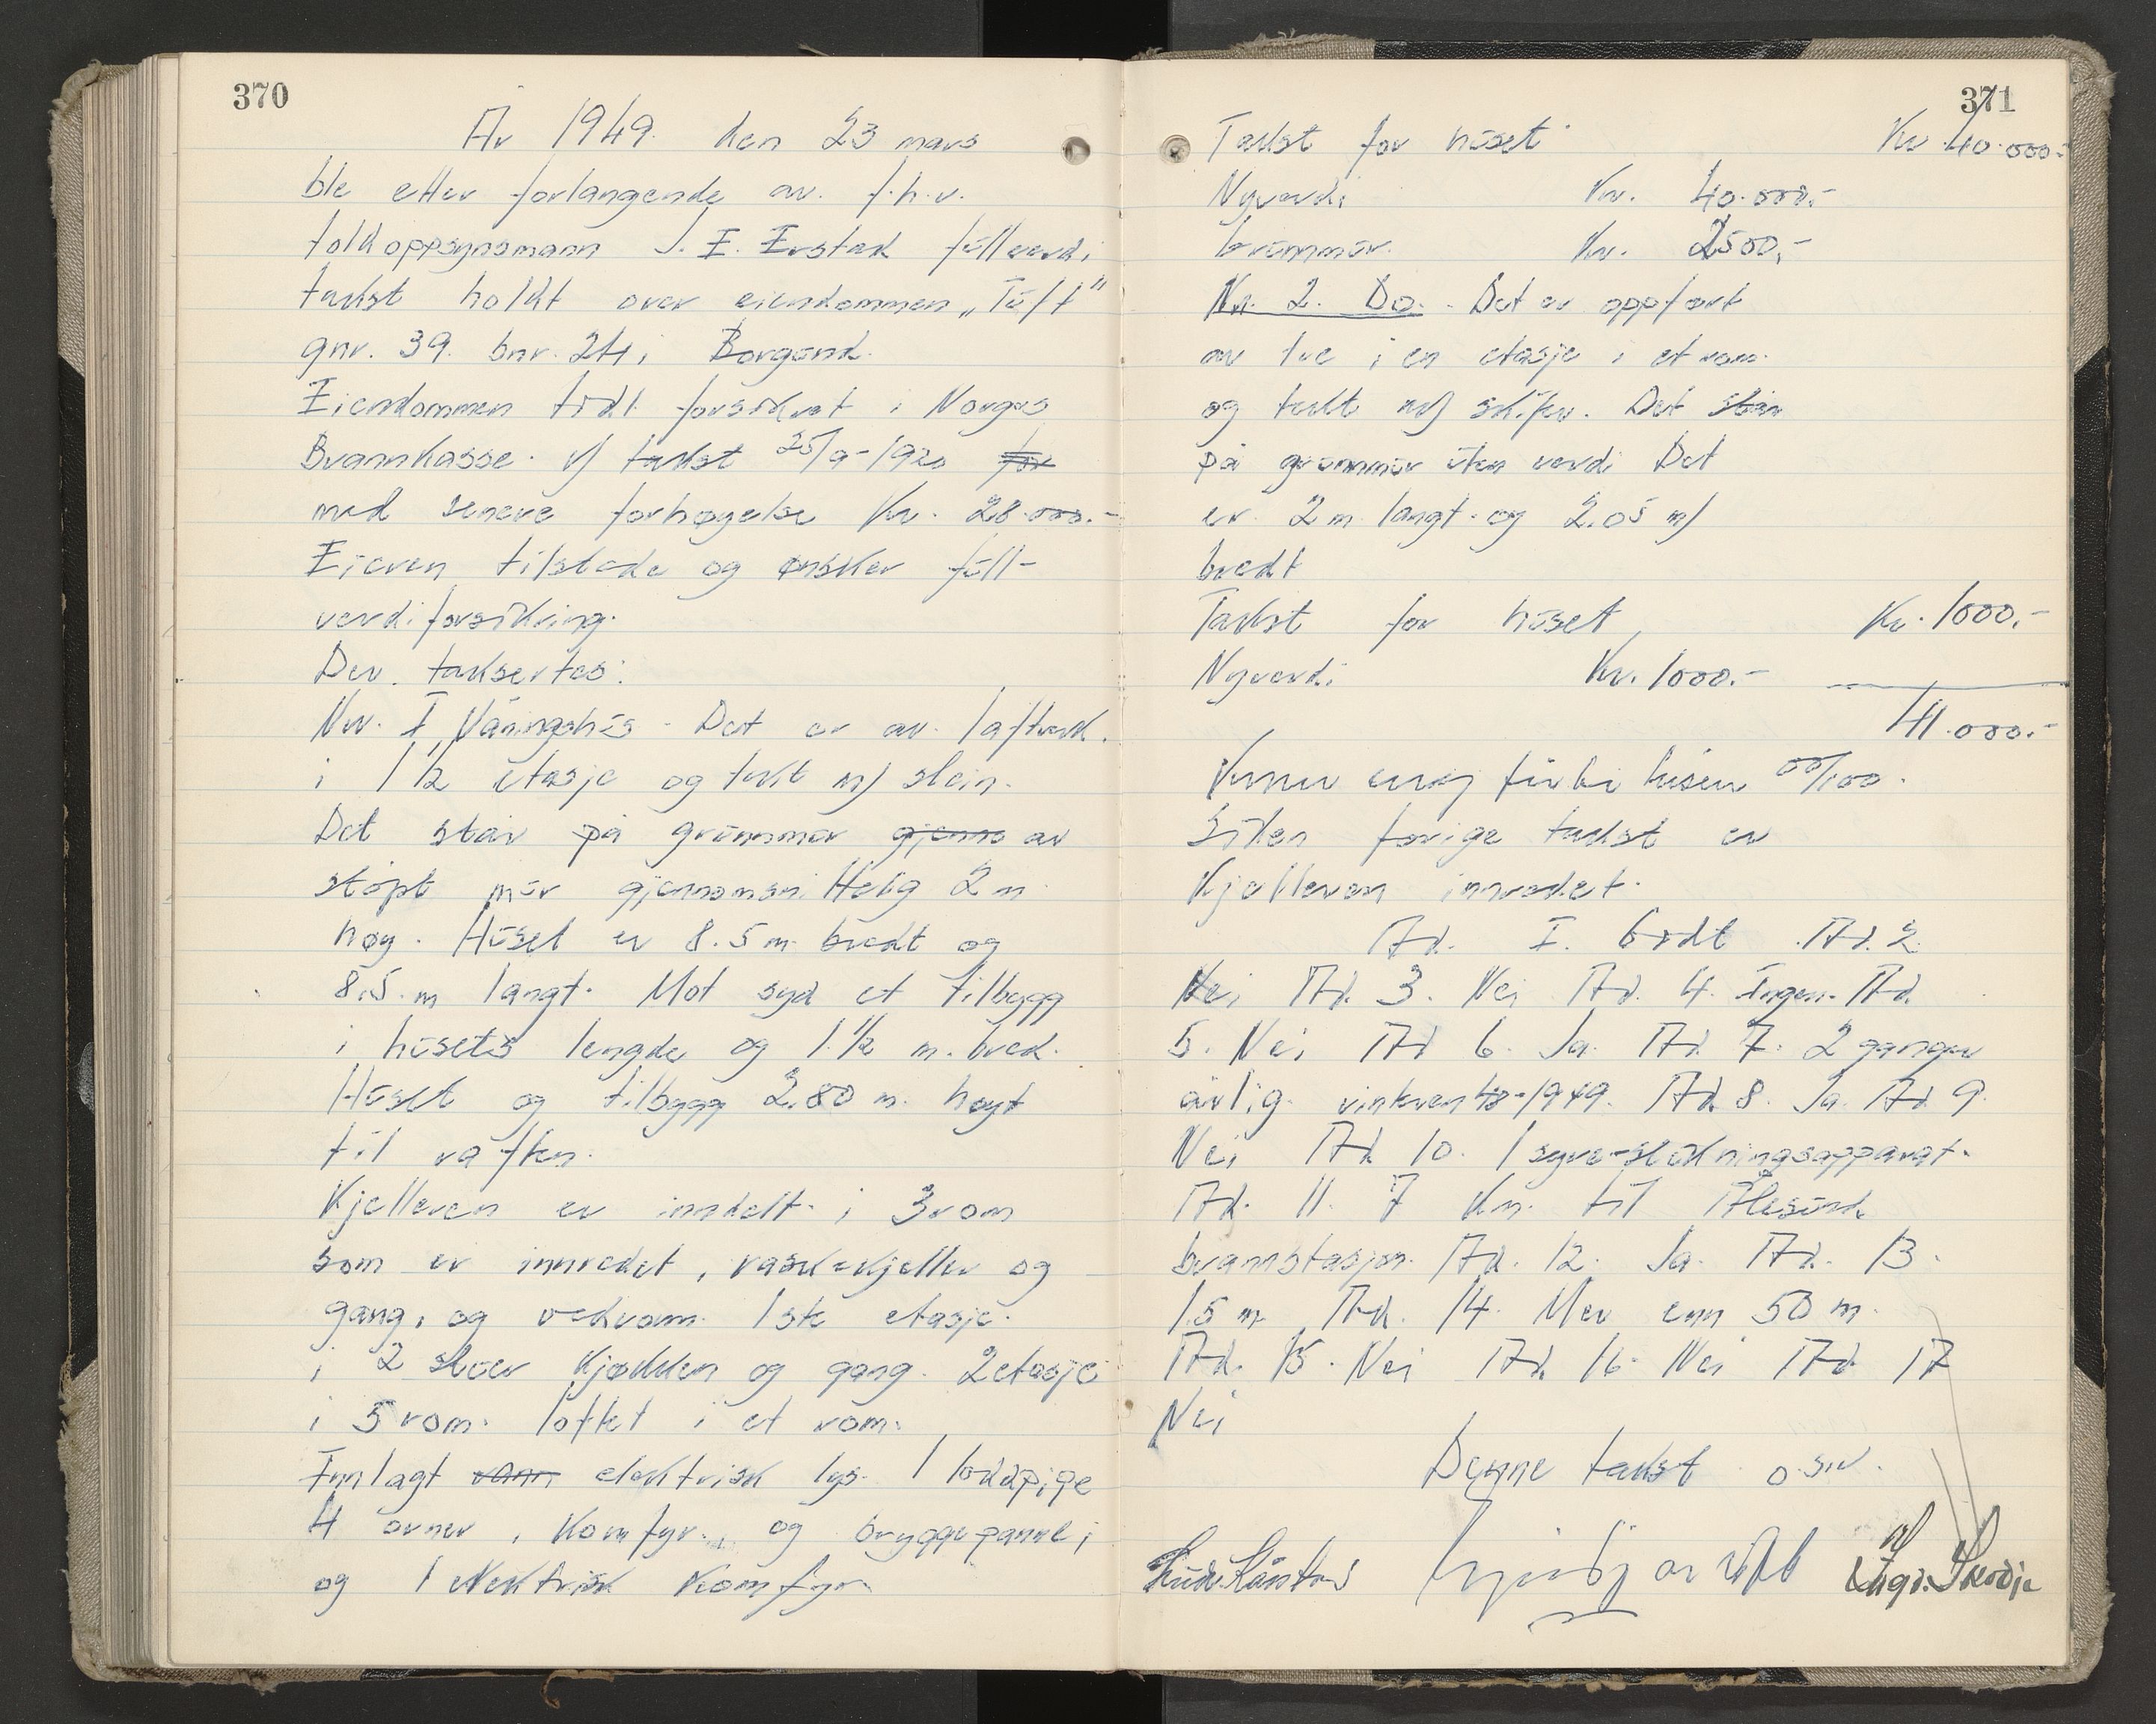 370
År 1949. den 23 mars
ble etter forlangende av. f.h.v.
tolloppsynsmann J. E. Erstad fullverdi
takst holdt over eiendommen „Tuft"
gnr. 39. bnr. 24 i Borgund.
Eiendommen tidl. forsikret i Norges
Brannkasse. v/ takst 25/9-1920 for
med senere forhøyelse Kr. 28.000.-
Eieren tilstede og ønsker full-
verdiforsikring.
Der. taksertes:
Nr. I Våningshus. Det er av. lafteverk.
i 1 1/2 etasje og tekt m/ stein.
Det står på grunnmur gjenno av
støpt mur gjennomsnittelig 2 m
høy. Huset er 8.5 m. bredt og
8.5. m langt. Mot syd et tilbygg
i husets lengde og 1.1/2 m. bred.
Huset og tilbygg 2.80 m. høyt
til raften.
Kjelleren er inndelt. i 3 rom
som er innredet, vask=kjeller og
gang, og vedrom. 1ste etasje.
i 2 stuer kjøkken og gang. 2 etasje
i 5 rom. loftet i et rom.
Innlagt vann elektrisk lys. 1 loddpipe
4 ovner, Komfyr., og bryggepanne,
og 1 elektrisk komfyr
371
Takst for huset Kr 40.000.-
Nyverdi Kr. 40.000.-
brunnmur. Kr. 2500,-
Nr. 2. Do. Det er oppført
av tre i en etasje i et rom.
og tekt m/ skifer. Det står
på grunnmur uten verdi Det
er. 2 m langt. og 2.05 m/
bredt
Takst for huset Kr. 1000.-
Nyverdi Kr. 1000.-
41.000.-
husene 00/100.
Siden forige takst er
Kjelleren innredet.
Ad. I. Godt Ad. 2.
Nei Ad. 3. Nei Ad. 4. Ingen. Ad.
5. Nei Ad 6. Ja. Ad. 7. 2 ganger
årlig. vinteren 48-1949. Ad. 8. Ja. Ad 9.
Nei Ad 10. 1 syre-slukningsapparat.
Ad. 11. 7 Km. til Ålesund
brannstasjon. Ad. 12. Ja. Ad. 13.
15 m Ad. 14. Mer enn 50 m.
Ad. 15. Nei Ad. 16. Nei Ad. 17
Nei
Denne takst o.s.v.